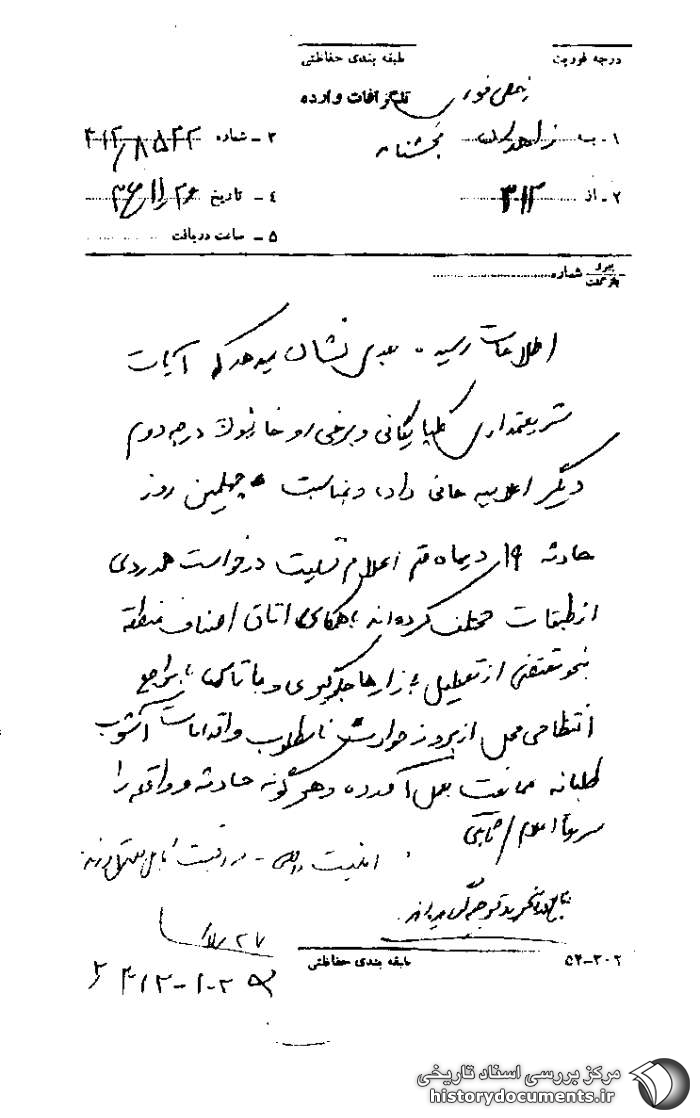 درجه فوریت
طبقه بندی حفاظتی
خیلی فوری
تلگرافات وارده
۱ - به زاهدان بخشنامه
۲ - از ۳۱۲
۳ - شماره ۳۱۲/۸۵۴۲
۴ - تاریخ ۲۶/۱۱/۳۶
۵ - ساعت دریافت
پیرو
بازگشت شماره
اطلاعات رسیده بعدی نشان میدهد که آیات
شریعتمداری گلپایگانی و برخی روحانیون درجه دوم
دیگر اعلامیه هائی داده و بمناسبت چهلمین روز
حادثه ۱۹ دیماه قم اعلام تسلیت درخواست همدردی
از طبقات مختلف کرده‌اند با همکاری اتاق اصناف منطقه
بنحو مقتضی از تعطیل بازارها جلوگیری و با تماس با مراجع
انتظامی محل از بروز حوادث نامطلوب و اقدامات آشوب
طلبانه ممانعت بعمل آورده و هر گونه حادثه و واقعه را
سریعا اعلام / ثابتی
امنیت داخلی - مراقبت
توجه
۲۷
۵۴-۳۰۲
طبقه بندی حفاظتی
مرکز بررسی اسناد تاریخی
historydocuments.ir